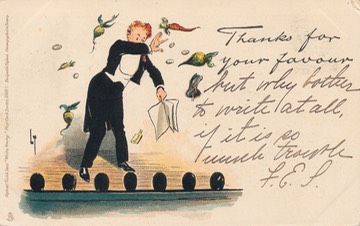 Thanks for
your favour
but why bother
to write at all,
if it is so
much trouble
F. E. S.